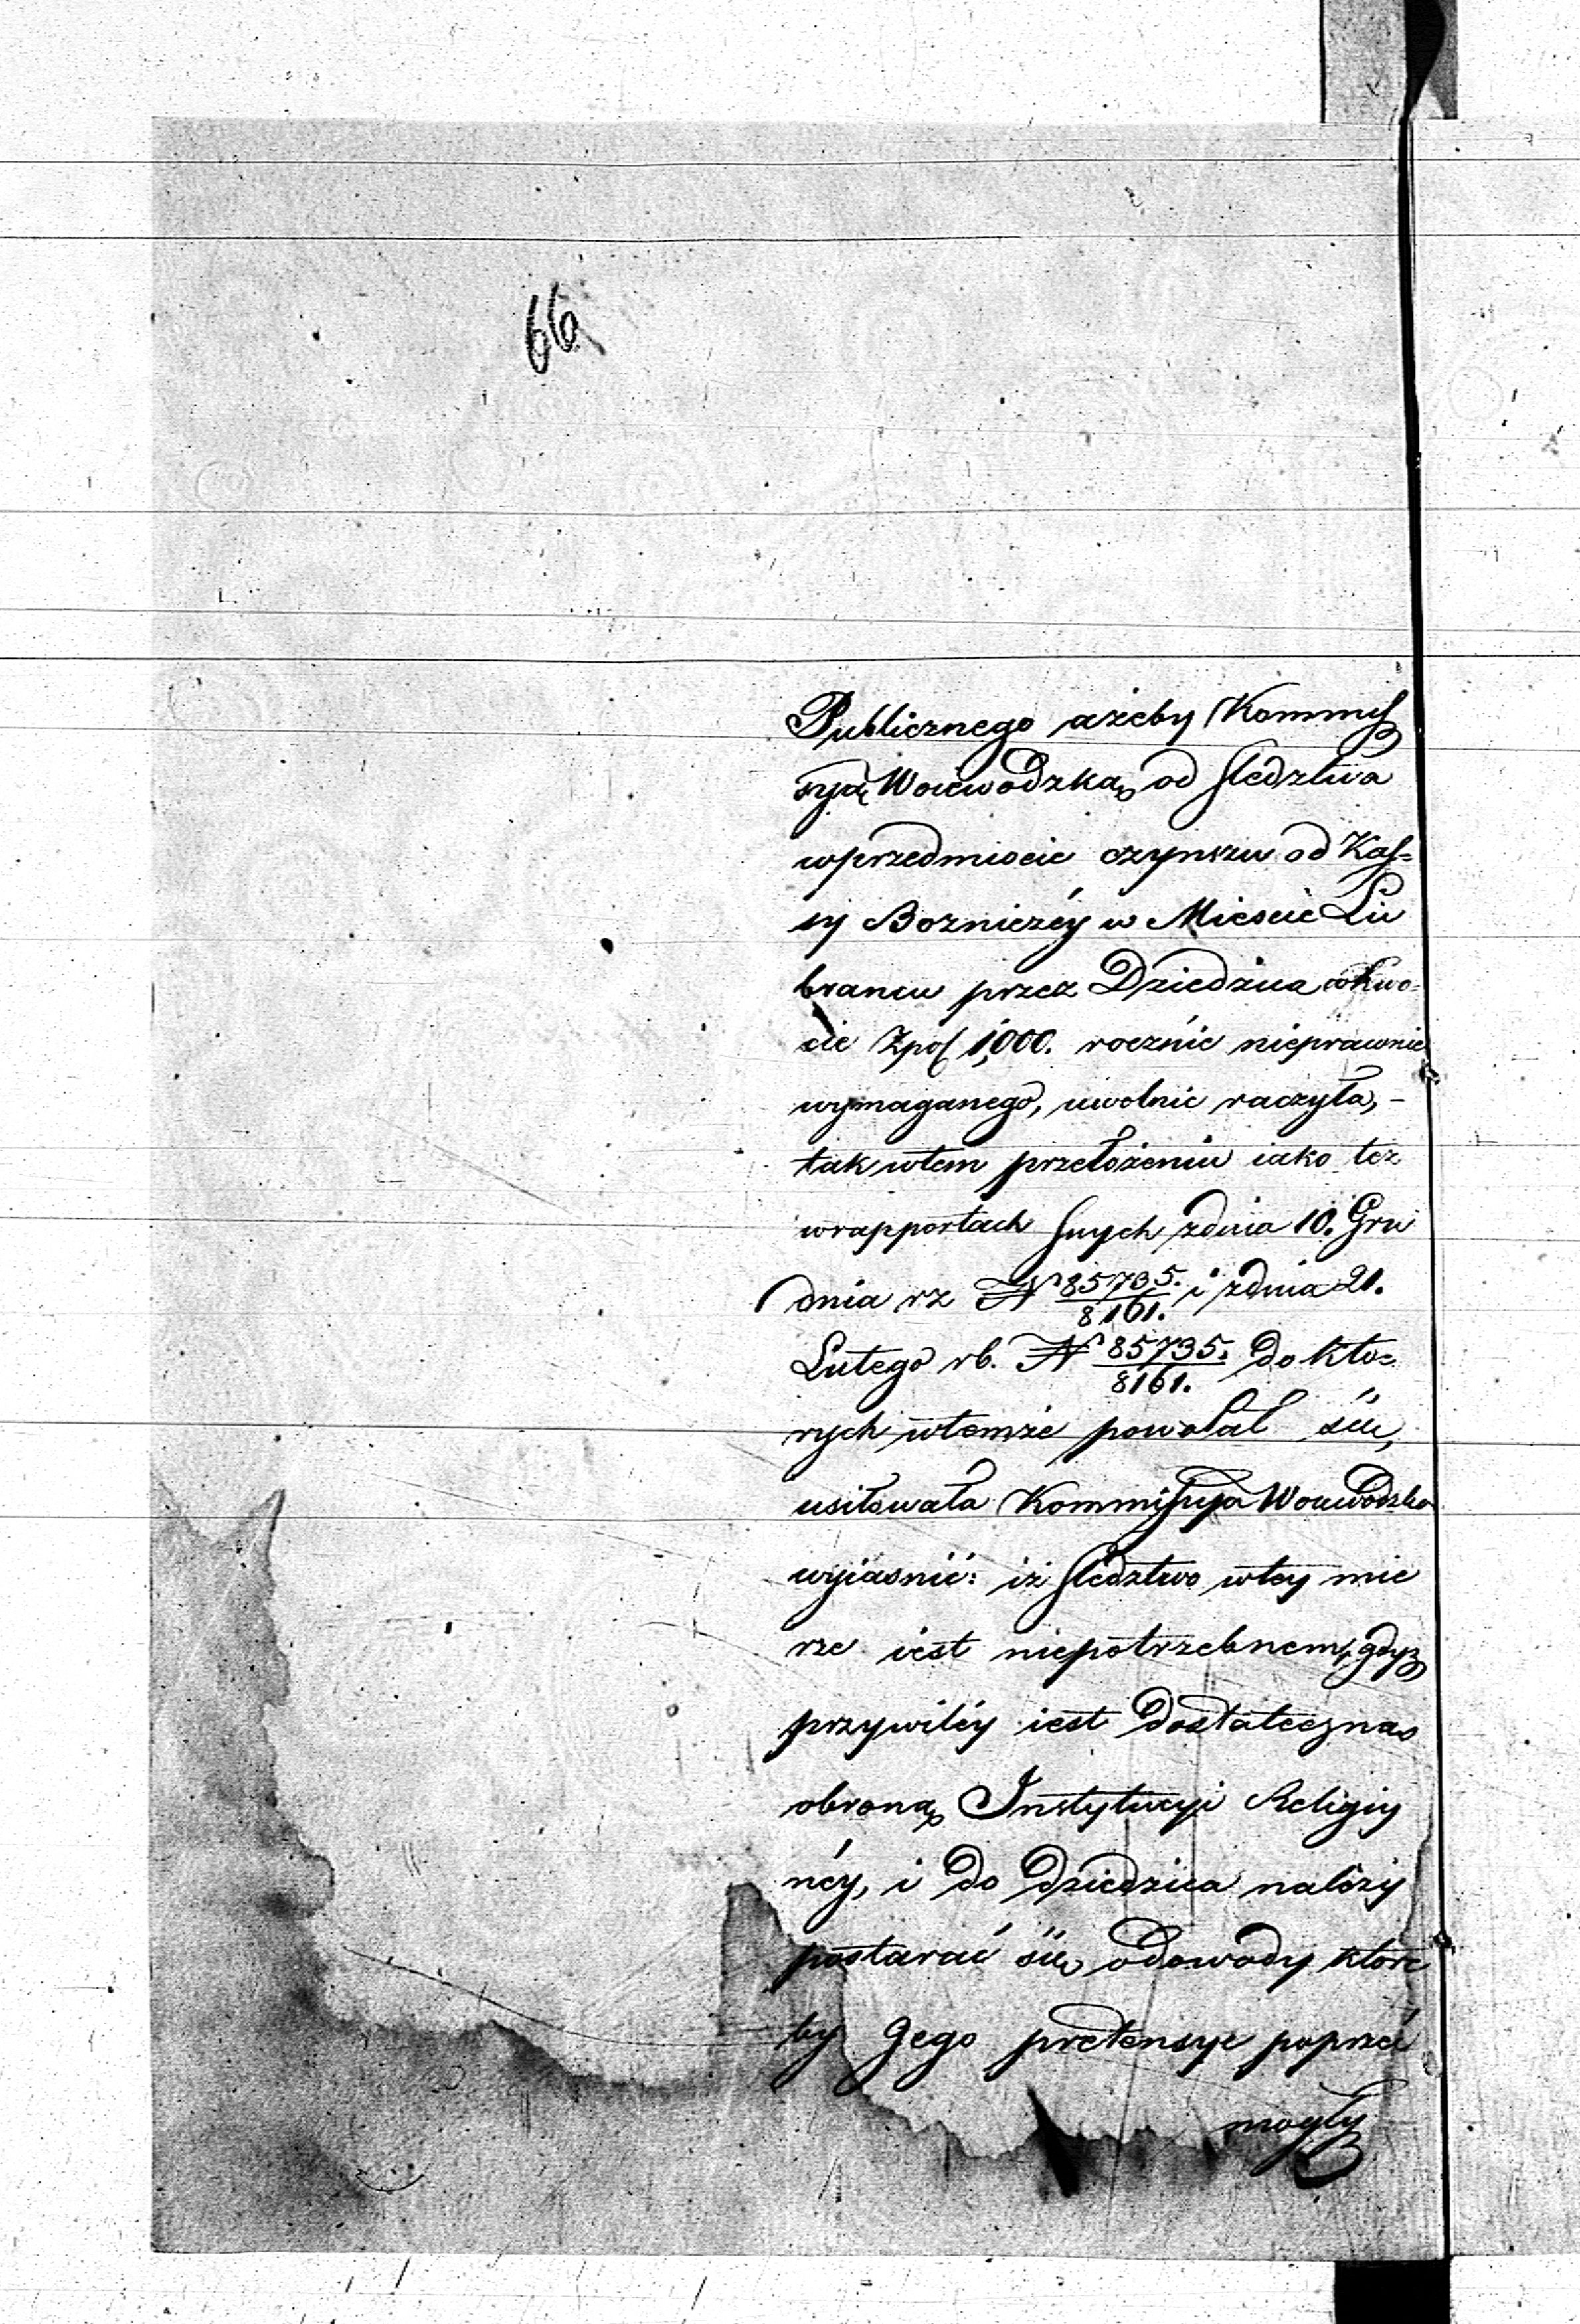 66
Publicznego ażeby Kommis
syą Woiewodzką od sledztwa
w przedmiocie czynszu od Kas=
sy Bozniczéy w Miescie Lu
brancu przez Dziedzica w kwo=
cie Zpol 1,000. rocznie nieprawnie
wymaganego, uwolnic raczyła, -
tak wtem przełożeniu iako tez
w rapportach Swych z dnia 10. Gru
dnia rz N 85735./8161. i z dnia 21.
Lutego rb. N 85735./8161. do kto=
rych wtemże powołał się,
usiłowała Kommissyja Woiewodzka
wyiasnić: iż sledztwo wtey mie
rze iest niepotrzebnem, gdyz
przywiléy iest dostateczną
obroną Instytucyi Religiy
néy, i do dziedzica należy
postarać się o dowody ktore
by Jego pretensye poprzeć
mogły